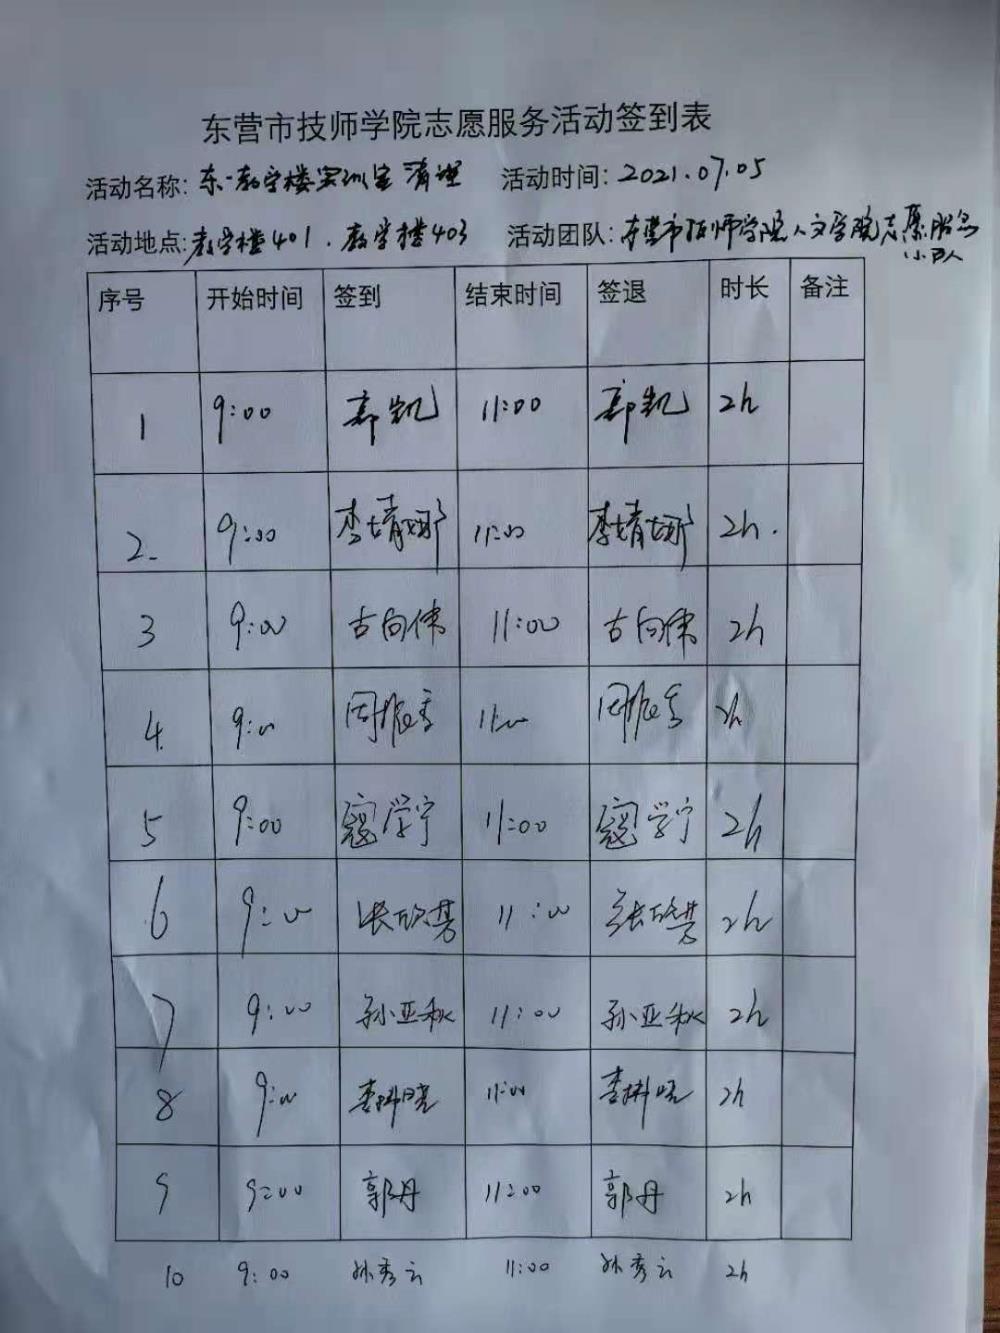 东营市技师学院志愿服务活动签到表
活动名称: 东一教学楼实训室 清理 活动时间: 2021.07.05
活动地点: 教学楼401. 教学楼403 活动团队: 东营市技师学院人文学院志愿服务
小队
序号 开始时间 签到 结束时间 签退 时长 备注
1 9:00 郭凯 11:00 郭凯 2h
2. 9:00 李婧娜 11:00 李婧娜 2h.
3 9:00 古向伟 11:00 古向伟 2h
4. 9:00 周振香 11:00 周振香 2h
5 9:00 寇学宁 11:00 寇学宁 2h
6 9:00 张欣芳 11:00 张欣芳 2h
7 9:00 孙亚秋 11:00 孙亚秋 2h
8 9:00 李晓 11:00 李晓 2h
9 9:00 郭丹 11:00 郭丹 2h
10 9:00 孙秀云 11:00 孙秀云 2h